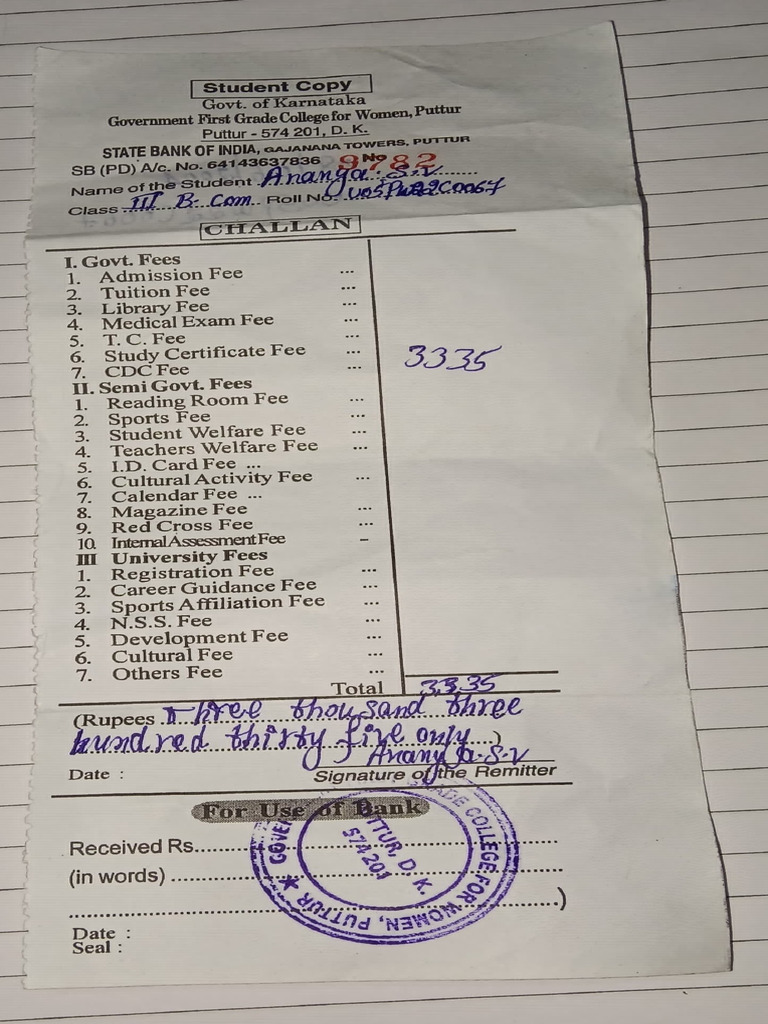 Student Copy
Govt. of Karnataka
Government First Grade College for Women, Puttur
Puttur - 574 201, D. K.
STATE BANK OF INDIA, GAJANANA TOWERS, PUTTUR
SB (PD) A/c. No. 64143637836 No 9782
Name of the Student Ananya. S.V
Class III B. Com Roll No. U05PW22C0067
CHALLAN
I. Govt. Fees
1. Admission Fee ...
2. Tuition Fee ...
3. Library Fee ...
4. Medical Exam Fee ...
5. T. C. Fee ...
6. Study Certificate Fee ... 3335
7. CDC Fee ...
II. Semi Govt. Fees
1. Reading Room Fee ...
2. Sports Fee ...
3. Student Welfare Fee ...
4. Teachers Welfare Fee ...
5. I.D. Card Fee ...
6. Cultural Activity Fee ...
7. Calendar Fee ...
8. Magazine Fee ...
9. Red Cross Fee ...
10. Internal Assessment Fee –
III University Fees
1. Registration Fee ...
2. Career Guidance Fee ...
3. Sports Affiliation Fee ...
4. N.S.S. Fee ...
5. Development Fee ...
6. Cultural Fee ...
7. Others Fee ...
Total 3335
(Rupees Three thousand three
hundred thirty five only)
Ananya.S.V
Date : Signature of the Remitter
For Use of Bank
Received Rs.
(in words)
)
Date :
Seal :
GRADE COLLEGE FOR WOMEN, PUTTUR ★
PUTTUR, D. K.
574 201